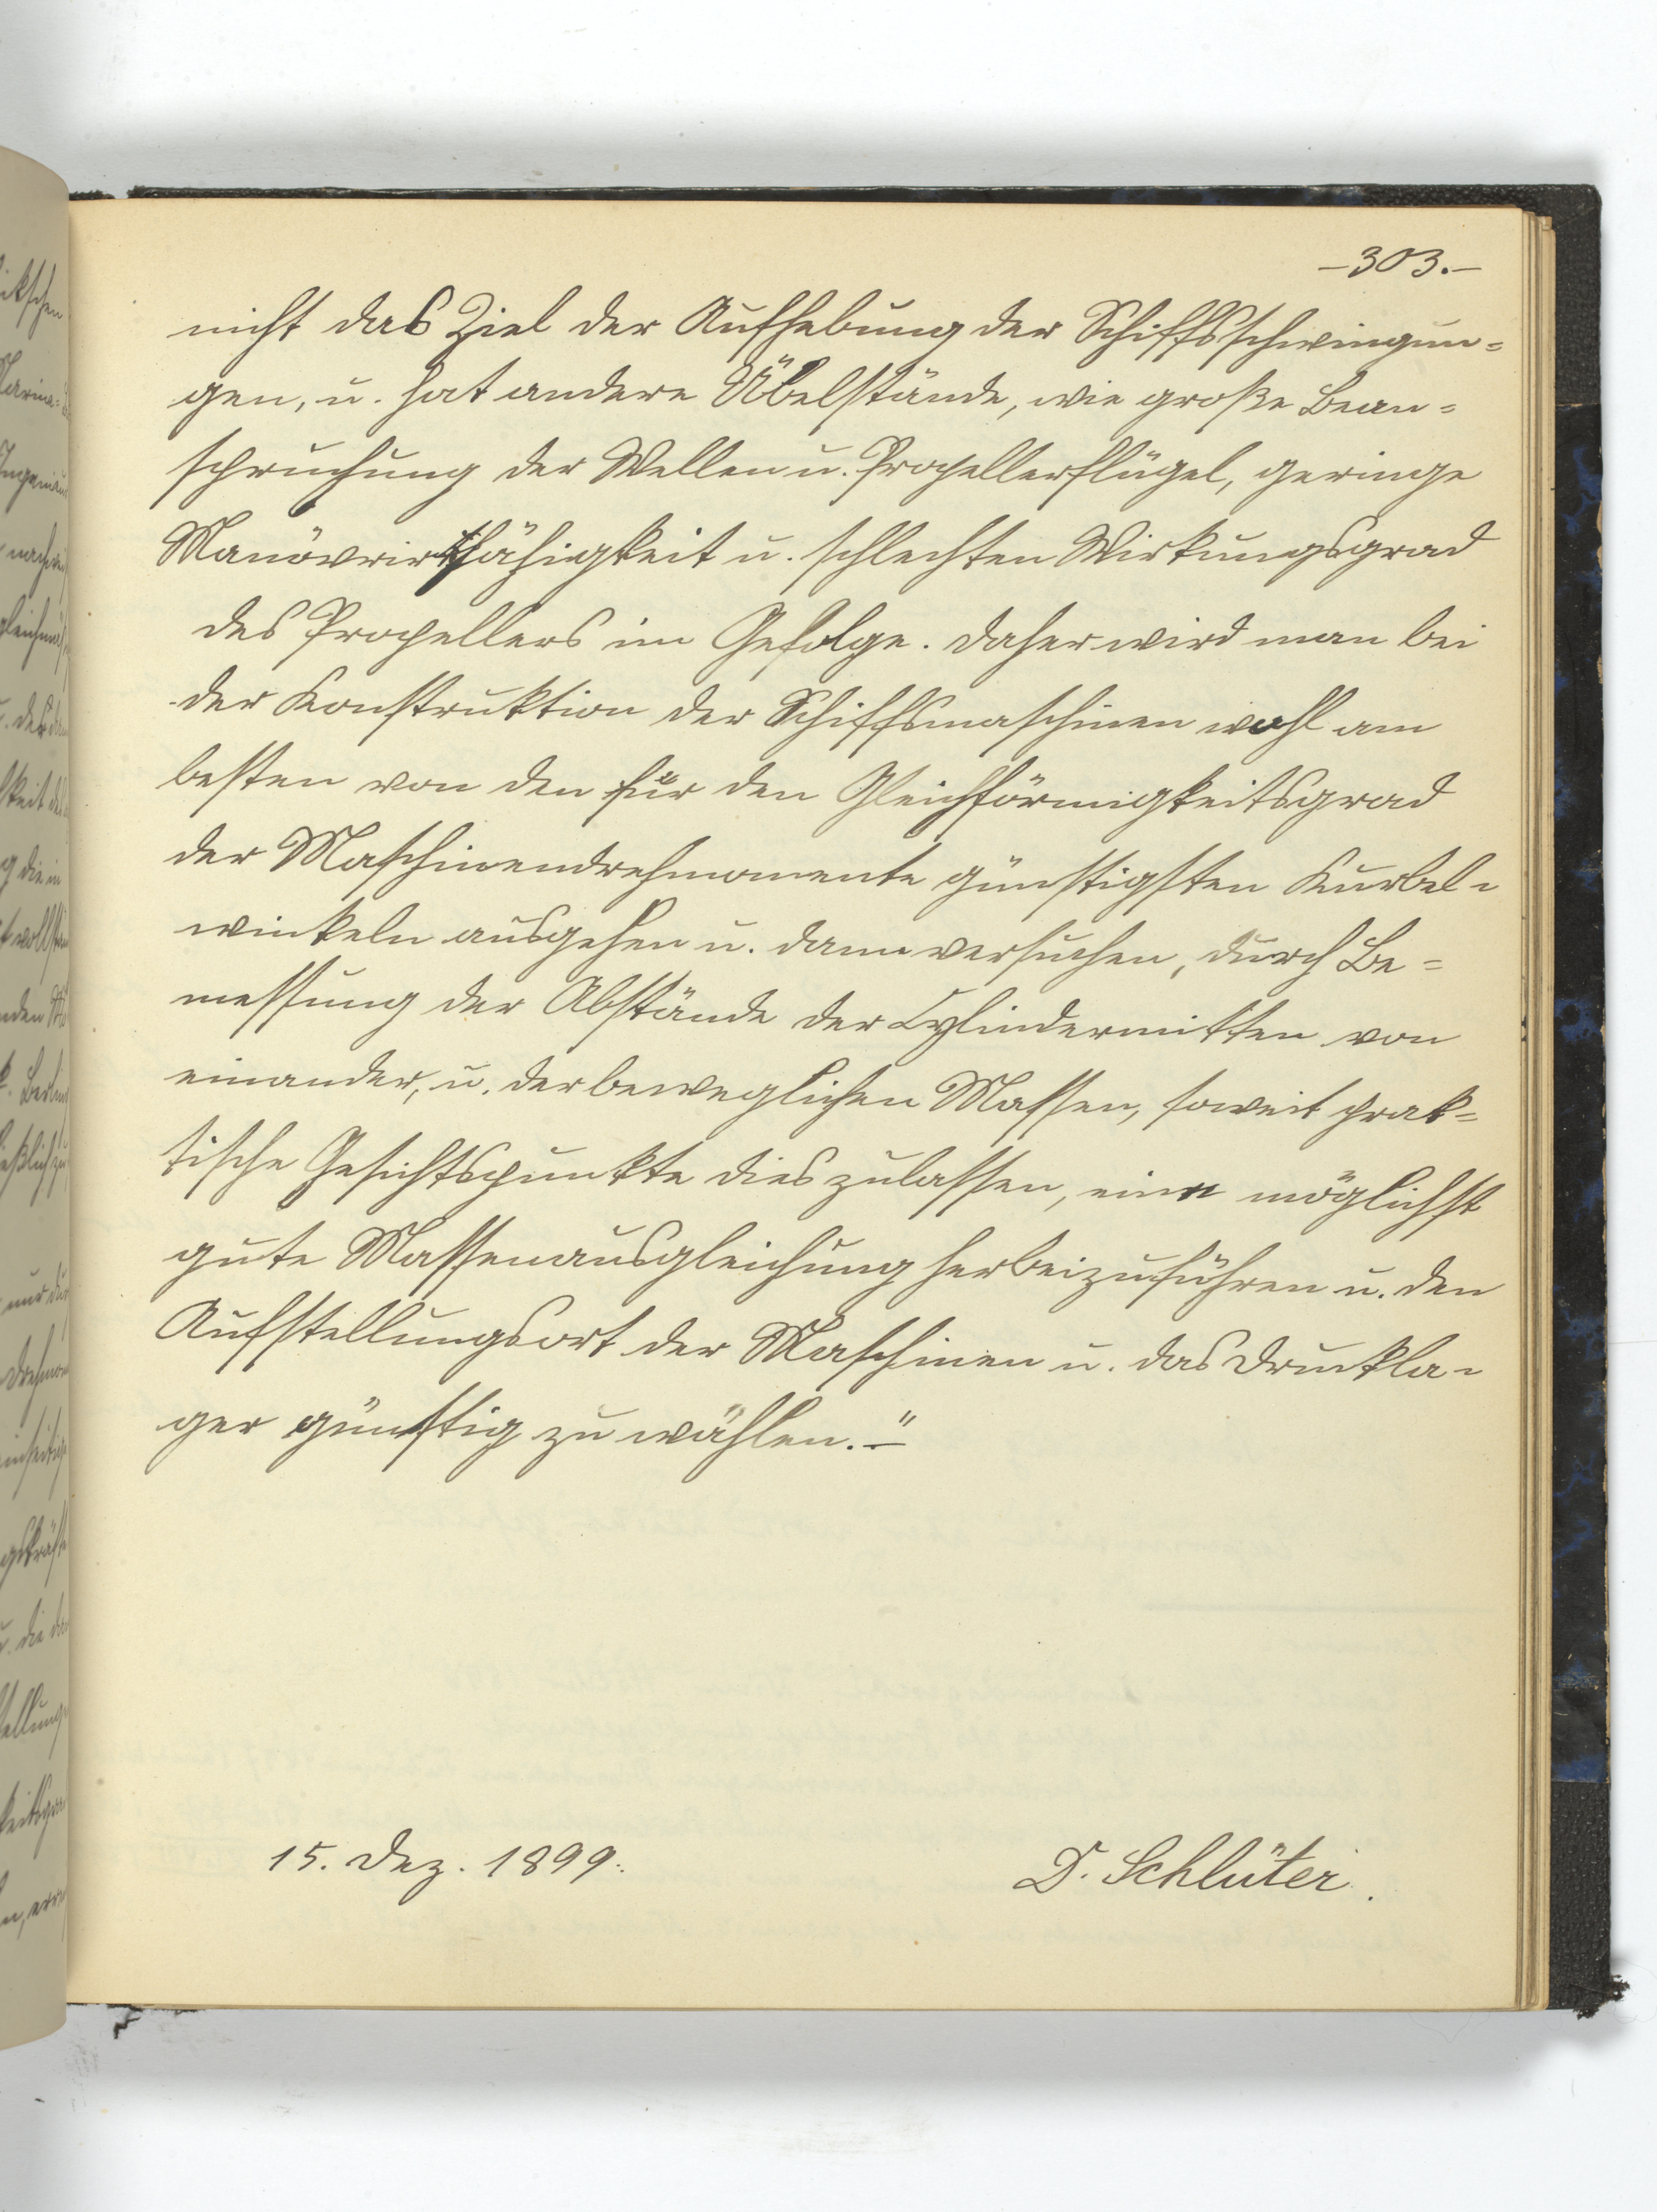 –303.–
nicht das Ziel der Aufhebung der Schiffsschwingun=
gen, u. hat andere Übelstände, wie große Bean=
spruchung der Wellen u. Propellerflügel, geringe
Manövrirfähigkeit u. schlechten Wirkungsgrad
des Propellers im Gefolge. Daher wird man bei
der Konstruktion der Schiffsmaschinen wohl am
besten von den für den Gleichförmigkeitsgrad
der Maschinendrehmomente günstigsten Kurbel=
winkeln ausgehen u. dann versuchen, durch Be=
messung der Abstände der Cylindermitten von
einander, u. der beweglichen Massen, soweit prak=
tische Gesichtspunkte dies zulassen, eine möglichst
gute Massenausgleichung herbeizuführen u. den
Aufstellungsort der Maschinen u. das Druckla=
ger günstig zu wählen.–"
15. Dez. 1899.
D. Schlüter.